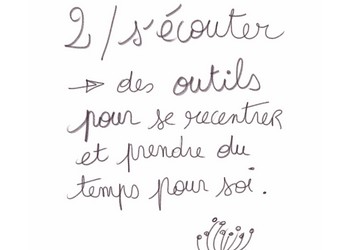 2/ s'écouter
→ des outils
pour se recentrer
et prendre du
temps pour soi.